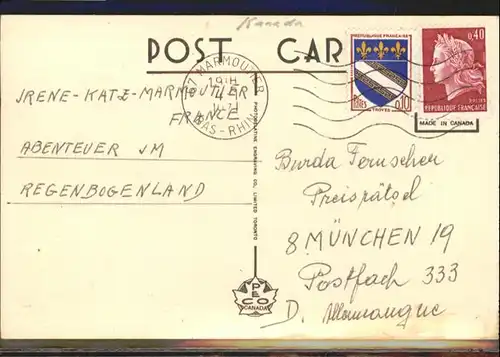 Kanada
POST CAR
67 MARMOUTIER
19 H
BAS-RHIN
REPUBLIQUE FRANÇAISE
0,10
TROYES
0,40
REPUBLIQUE FRANÇAISE
MADE IN CANADA
IRENE-KATZ-MARMOUTIER
FRANCE
ABENTEUER JM
REGENBOGENLAND
PHOTOGELATINE ENGRAVING CO., LIMITED TORONTO
PECO
CANADA
Burda Fernseher
Preisrätsel
8 MÜNCHEN 19
Postfach 333
D. Allemangue